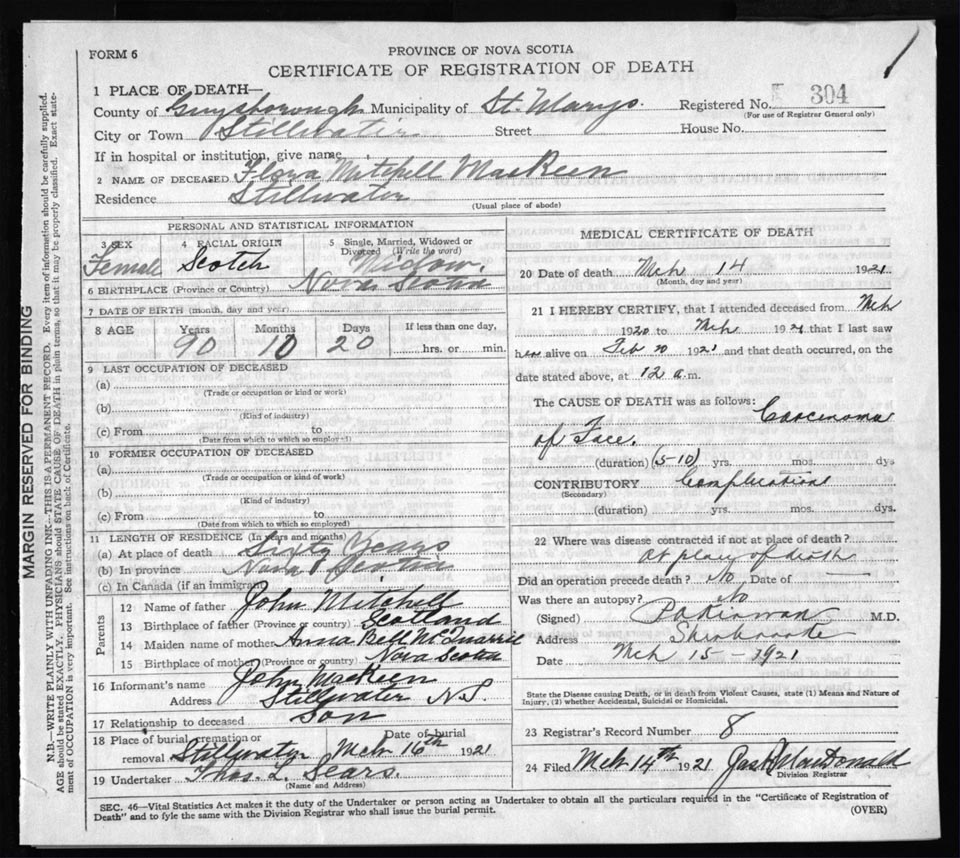 FORM 6
PROVINCE OF NOVA SCOTIA
CERTIFICATE OF REGISTRATION OF DEATH
MARGIN RESERVED FOR BINDING
N.B.—WRITE PLAINLY WITH UNFADING INK—THIS IS A PERMANENT RECORD. Every item of information should be carefully supplied.
AGE should be stated EXACTLY. PHYSICIANS should STATE CAUSE OF DEATH in plain terms, so that it may be properly classified. Exact state-
ment of OCCUPATION is very important. See instructions on back of Certificate.
1 PLACE OF DEATH—
County of Guysborough Municipality of St. Marys. Registered No. 304
(For use of Registrar General only)
City or Town Stillwater Street House No.
If in hospital or institution, give name
2 NAME OF DECEASED Flora Mitchell MacKeen
Residence Stillwater
(Usual place of abode)
PERSONAL AND STATISTICAL INFORMATION
3 SEX 4 RACIAL ORIGIN 5 Single, Married, Widowed or
Divorced (Write the word)
Female Scotch Widow.
6 BIRTHPLACE (Province or Country) Nova Scotia
7 DATE OF BIRTH (month, day and year)
8 AGE Years Months Days If less than one day,
90 10 20 hrs. or min.
9 LAST OCCUPATION OF DECEASED
(a)
(Trade or occupation or kind of work)
(b)
(Kind of industry)
(c) From to
(Date from which to which so employed)
10 FORMER OCCUPATION OF DECEASED
(a)
(Trade or occupation or kind of work)
(b)
(Kind of industry)
(c) From to
(Date from which to which so employed)
11 LENGTH OF RESIDENCE (In years and months)
(a) At place of death Sixty Years
(b) In province Nova Scotia
(c) In Canada (if an immigrant)
Parents
12 Name of father John Mitchell
13 Birthplace of father (Province or country) Scotland
14 Maiden name of mother Anna Bell McQuarrie
15 Birthplace of mother (Province or country) Nova Scotia
16 Informant's name John MacKeen
Address Stillwater N.S.
17 Relationship to deceased Son
18 Place of burial, cremation or Date of burial
removal Stillwater Mch 16th 1921
19 Undertaker Thos. L. Sears.
(Name and Address)
MEDICAL CERTIFICATE OF DEATH
20 Date of death Mch 14 1921
(Month, day and year)
21 I HEREBY CERTIFY, that I attended deceased from Mch
1920 to Mch 1921 that I last saw
her alive on Feb 20 1921 and that death occurred, on the
date stated above, at 12 a.m.
The CAUSE OF DEATH was as follows: Carcinoma
of Face.
(duration) (5-10) yrs. mos. dys
CONTRIBUTORY Complications
(Secondary)
(duration) yrs. mos. dys.
22 Where was disease contracted if not at place of death?
At place of death
Did an operation precede death? No Date of —
Was there an autopsy? No
(Signed) M.D.
Address Sherbrooke
Date Mch 15 - 1921
State the Disease causing Death, or in death from Violent Causes, state (1) Means and Nature of
Injury, (2) whether Accidental, Suicidal or Homicidal.
23 Registrar's Record Number 8
24 Filed Mch 14th 1921 Jas A MacDonald
Division Registrar
SEC. 46—Vital Statistics Act makes it the duty of the Undertaker or person acting as Undertaker to obtain all the particulars required in the "Certificate of Registration of
Death" and to fyle the same with the Division Registrar who shall issue the burial permit.
(OVER)